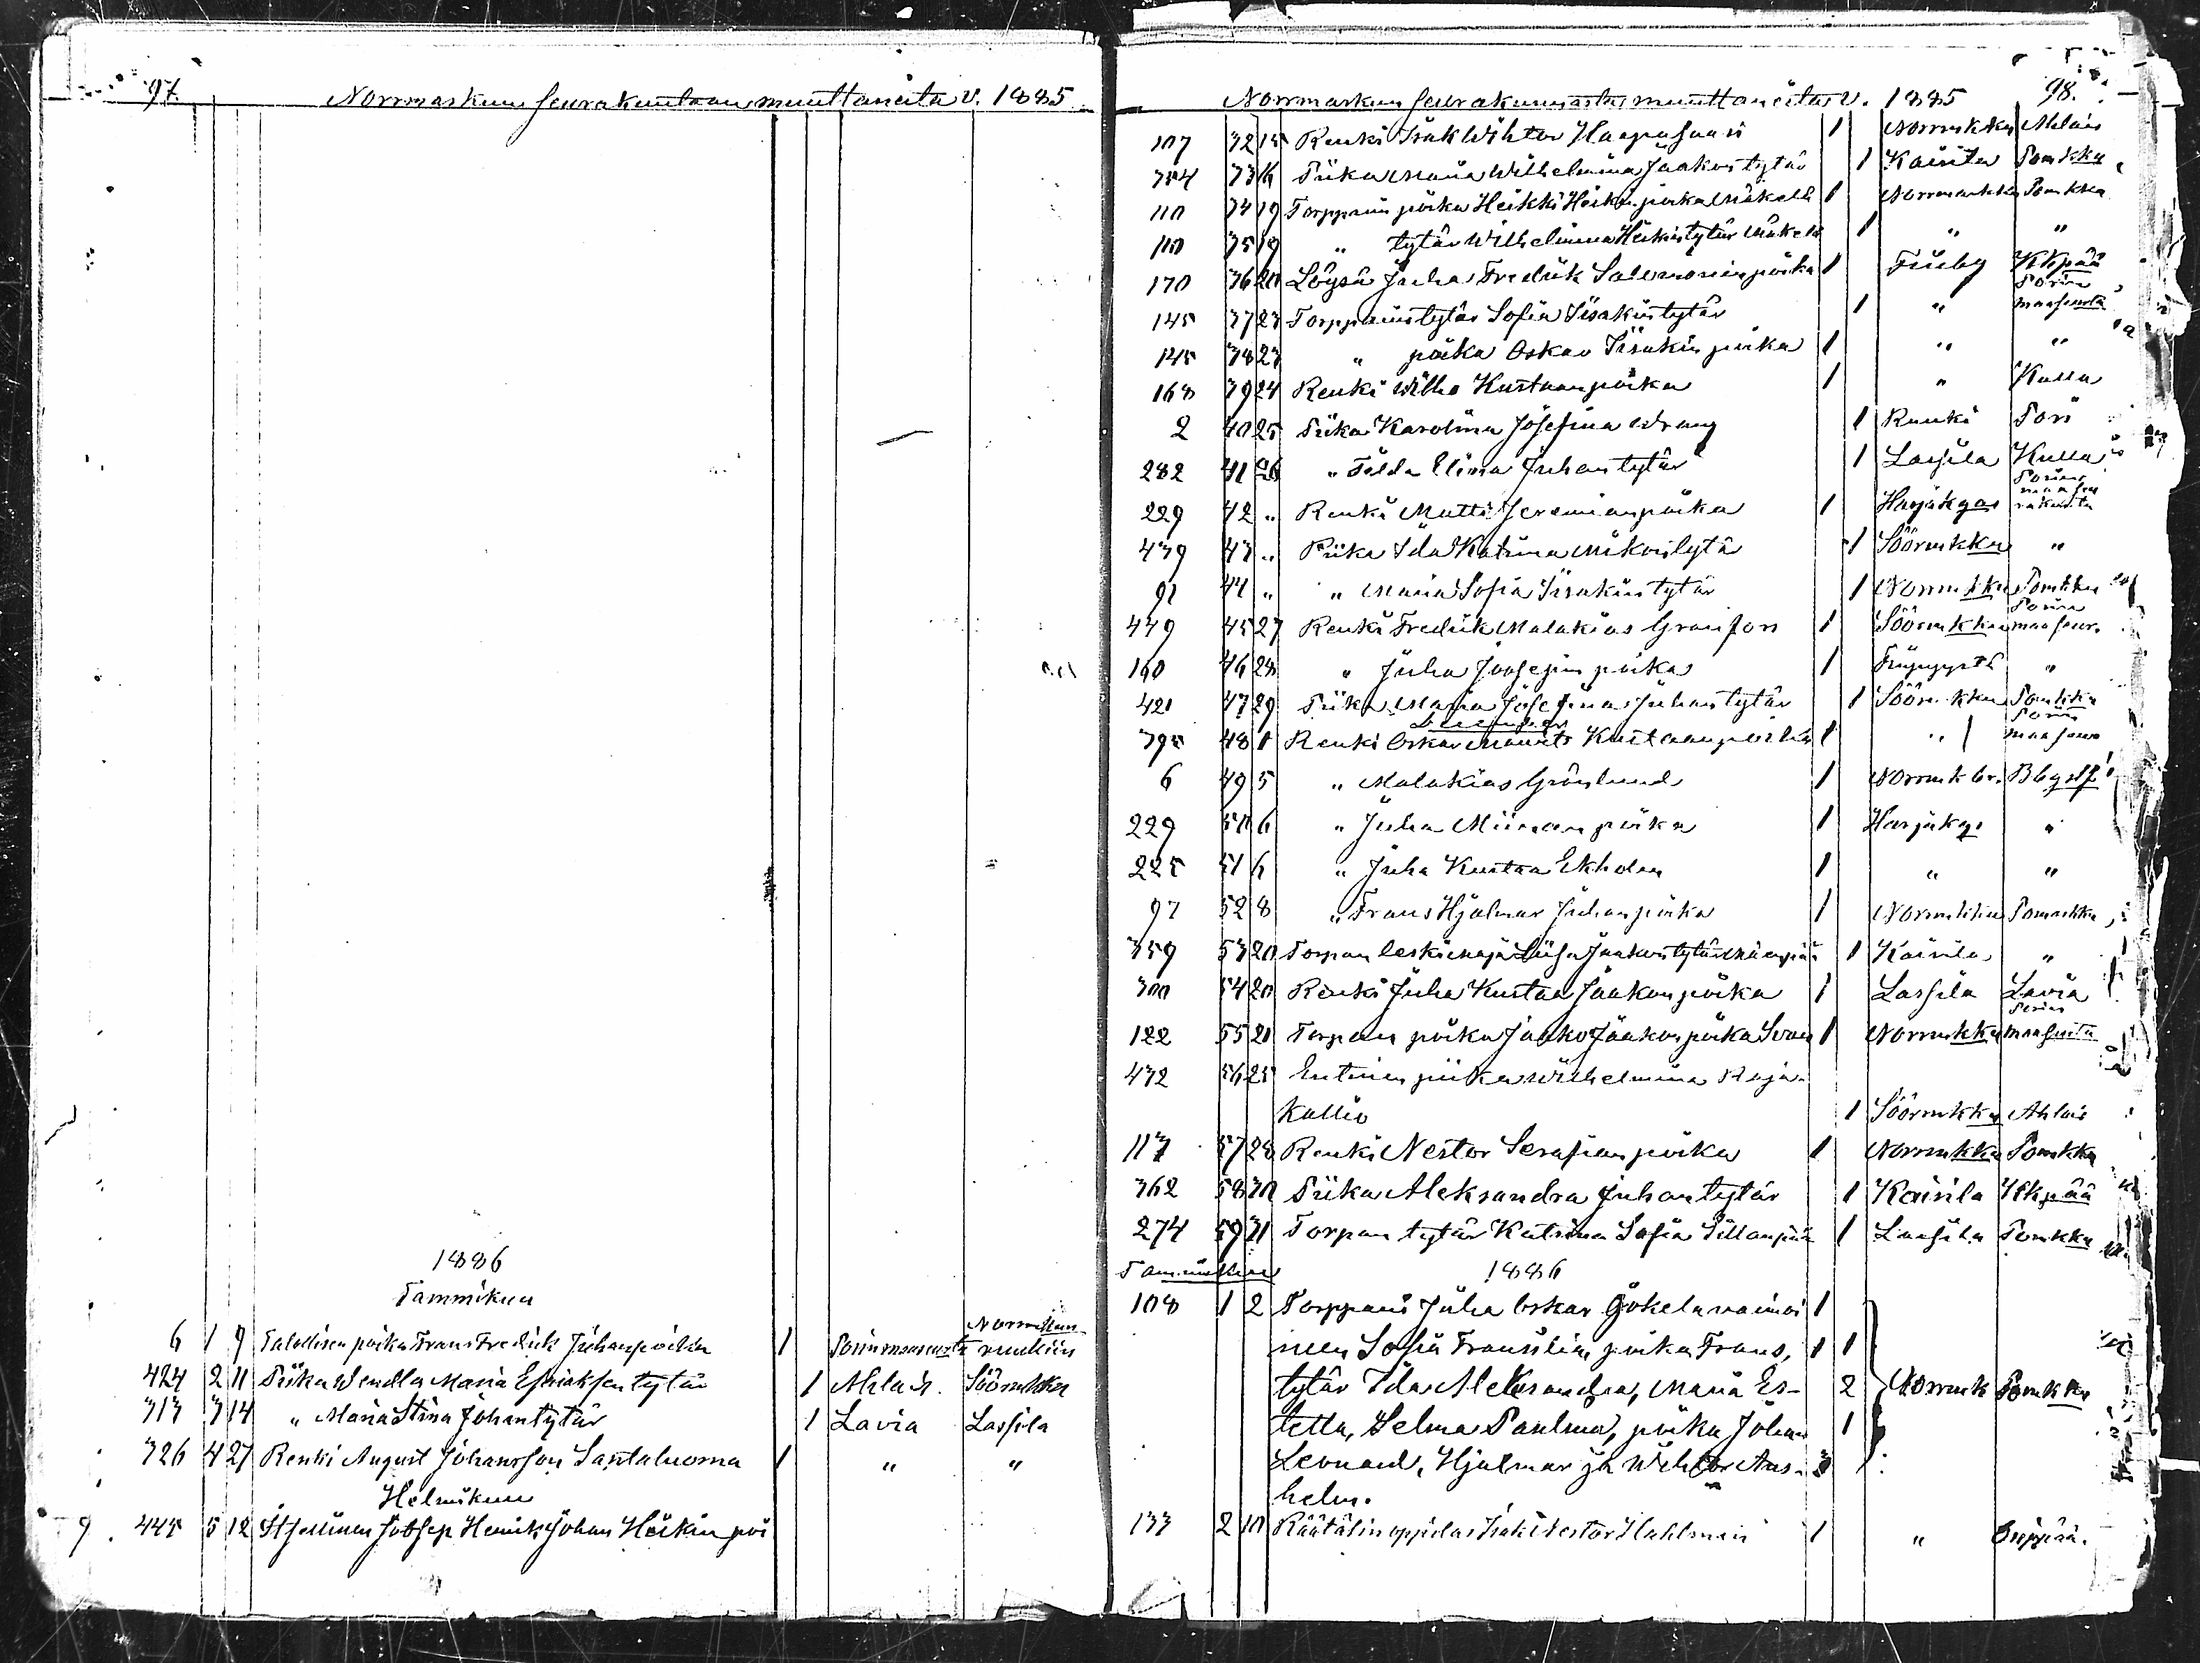 97.
Norrmarkun seurakuntaan muuttaneita v. 1885
1886
Tammikuu
6 1 9 Talollisen poika Frans Fredrik Juhanpoika 1 Porin maaseurk Norrmkun ruukiin
424 2 11 Piika Wendla Maria Esaiaksentytär 1 Ahlais. Söörmkku
313 3 14 " Maria Stina Johantytär 1 Lavia Lassila
326 4 27 Renki August Johansson Santaluoma 1 " "
Helmikuu
9. 445 5 12 Itsellinen Joosep Henrik Johan Heikin poi
98.
Norrmarkun seurakunnasta muuttaneita v. 1885
107 32 15 Renki Isak Wihtor Haapasaari 1 Norrmkku Ahlais
354 33 16 Piika Maria Wilhelmina Jaakontytär 1 Kairila Pomkku
110 34 19 Torpparin poika Heikki Heikinpoika Mäkelä 1 Norrmarkku Pomkku
110 35 19 " tytär Wilhelmina Heikintytär Mäkelä 1 " "
170 36 20 Löysä Juha Fredrik Salomoninpoika 1 Finby Kkpää
145 37 23 Torpparintytär Sofia Iisakintytär 1 " Porin maaseurk
145 38 23 " poika Oskar Iisakinpoika 1 " "
168 39 24 Renki Wilho Kustaanpoika 1 " Kulla
2 40 25 Piika Karolina Josefina Wrang 1 Ruuki Pori
282 41 26 " Tilda Elina Juhantytär 1 Lassila Kulla
229 42 " Renki Matti Jeremianpoika 1 Harjakgas Porin maaseurakunta
439 43 " Piika Ida Katrina Mikontytär 1 Söörmkku "
91 44 " " Maria Sofia Iisakintytär 1 Norrmkku Pomkku
449 45 27 Renki Fredrik Malakias Granfors 1 Söörmkku Porin maaseur.
160 46 28 " Juha Joosepin poika 1 "
421 47 29 Piika Maria Josefina Juhantytär 1 Söörmkku Pomkku
395 48 1 Renki Oskar Maurits Kustaanpoika 1 " Porin maaseur
6 49 5 " Malakias Grönlund 1 Norrmk br.
229 50 6 " Juha Miinanpoika 1 Harjakgs "
225 51 6 " Juha Kustaa Ekholm 1 " "
97 52 8 " Frans Hjalmar Juhanpoika 1 Norrmkku Pomarkku
359 53 20 Torpan leski Maja Liisa Jaakontytär 1 Kairila "
300 54 20 Renki Juha Kustaa Jaakonpoika 1 Lassila Lavia
122 55 21 Torpan poika Jaako Jaakonpoika 1 Norrmkku Porin maaseurk
432 56 25 Entinen piika Wilhelmina Raja-
kallio 1 Söörmkku Ahlais
117 57 28 Renki Nestor Serafianpoika 1 Norrmkku Pomkku
362 58 30 Piika Aleksandra Juhantytär 1 Kairila Kkpää
274 59 31 Torpan tytär Katrina Sofia Sillanpää 1 Lassila Pomkku
Tammikuu 1886
108 1 2 Torppari Juha Oskar Jokela vaimoi 1
neen Sofia Fransilia, poika Frans, 1 1
tytär Ida Aleksandra, Maria Es- 2 Norrmk Pomkku
tella, Selma Paulina, poika Johan 1
Leonard, Hjalmar ja Wihtor Ans- 3
helm.
133 2 10 Räätälin oppilas Isak Nestor Hahlman 1 "